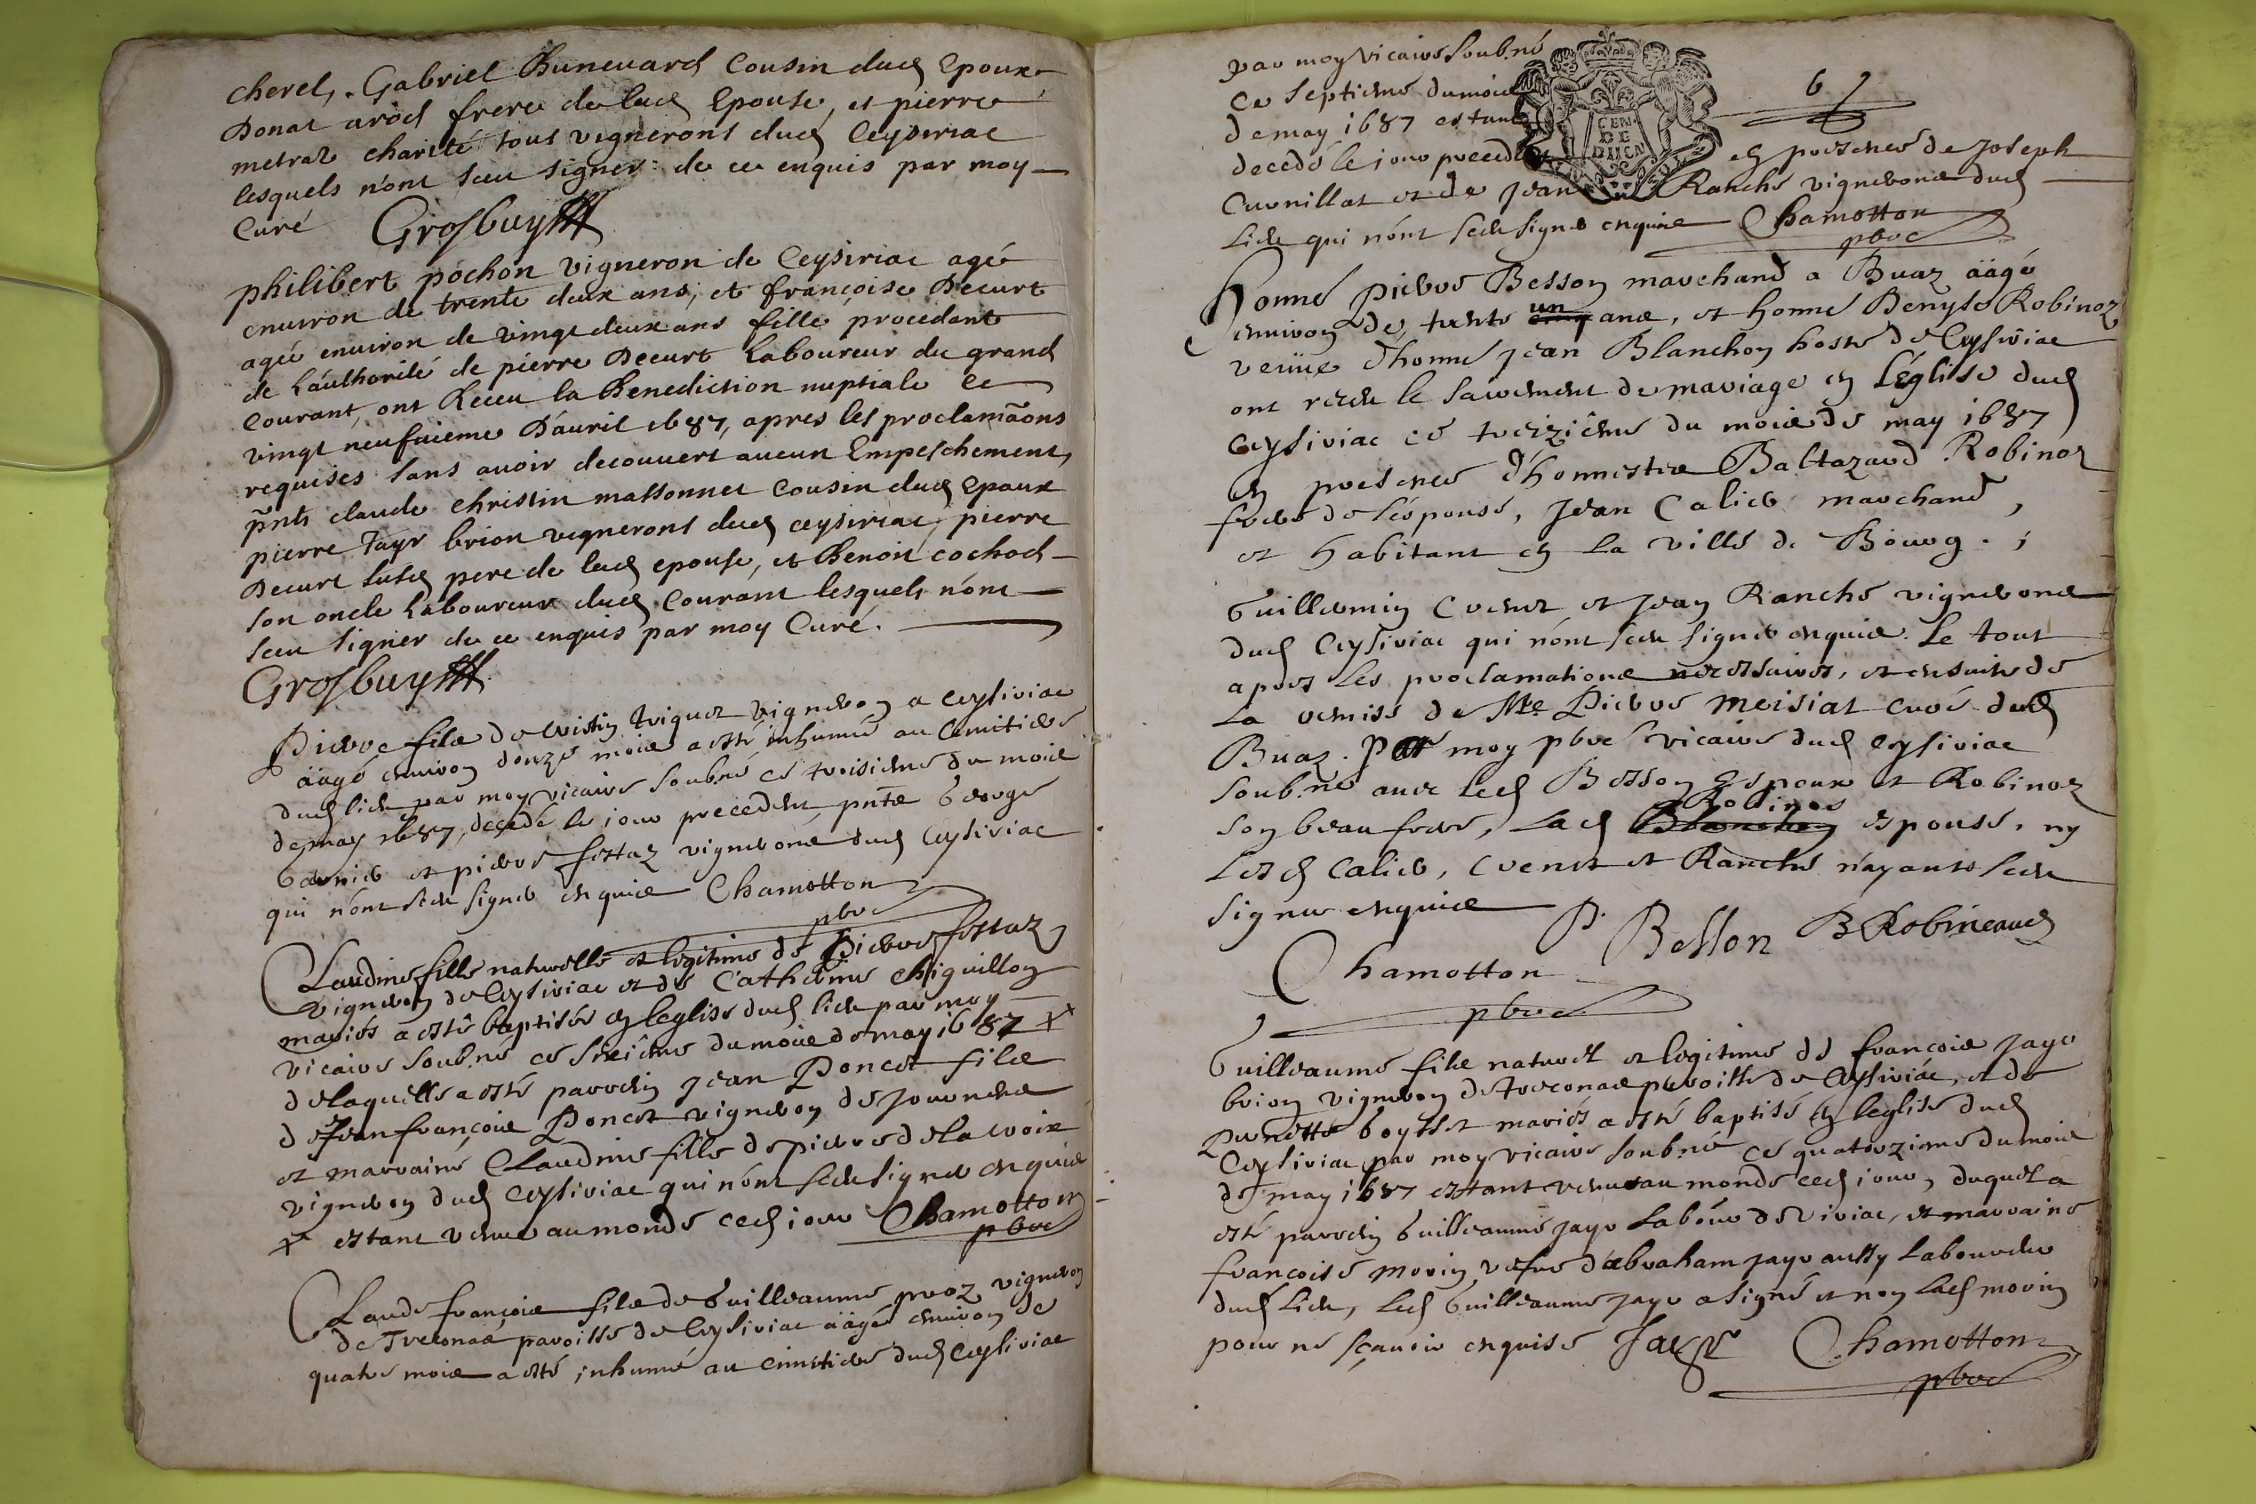 cherel, Gabriel Bunevard Cousin dud Epoux,
Donat arod frere de lad Epouse, et pierre
metraz charité tous vignerons dud Ceyseriac
lesquels n'ont sceu signer de ce enquis par moy
Curé Grosbuy
philibert pochon vigneron de Ceyseriac agé
environ de trente deux ans, et françoise Decurt
agée environ de vingt deux ans fille procedant
de L'authorité de pierre Decurt Laboureur du grand
Courant, ont Receu la Benediction nuptiale ce
vingt neufuieme D'auril 1687, apres les proclamãons
requises sans auoir decouuert aucun Empeschement,
pñts claude christin massonnet cousin dud Epoux
pierre Jayr brion vignerons dud ceyseriac, pierre
Decurt susd pere de lad epouse, et Benoit cochod
son oncle Laboureur dud Courant lesquels n'ont
sceu signer de ce enquis par moy Curé.
Grosbuy
Pierre fils de cristin triquet vigneron a ceysiriac
äagé environ douze mois a esté inhumé au Cimitiere
dud lieu par moy vicaire soubné ce troisieme du mois
de may 1687, decedé le jour precedent, pnts George
Garnier et pierre fettaz vignerons dud Ceysiriac
qui n'ont sceu signer enquis Chamotton
pbre
Claudine fille naturelle et legitime de Pierre fettaz
vigneron de Ceysiriac et de Catherine chiguillon
mariés a esté baptisée en leglise dud lieu par moy
vicaire soubné ce sixième du mois de may 1687 X
de laquelle a esté parrein Jean Poncet fils
de Jean françois Poncet vigneron de Journans
et marraine Claudine fille de pierre de la croix
vigneron dud Ceysiriac qui n'ont sceu signer enquis
X estant venue au monde ced jour Chamotton
pbre
Claude françois fils de Guilleaume proz vigneron
de Treconas paroisse de Ceysiriac äagé environ de
quatre mois a esté inhumé au cimitiere dud Ceysiriac
par moy vicaire soubné
ce septieme du mois
de may 1687 estant
decedé le jour precedent
GEN
DE
67
en presence de Joseph
Cuonillat et de Jean Ranche vignerons dud
Lieu qui n'ont sceu signer enquis Chamotton
pbre
Honne Pierre Besson marchand a Buaz äagé
environ de trente un ans, et honne Denyse Robinoz
veüue d'honne Jean Blanchon hoste de Ceysiriac
ont receu le sacrement de mariage en L'église dud
Ceysiriac ce treizième du mois de may 1687
en presence d'honnestes Baltazard Robinoz
frere de l'espouse, Jean Calier marchand,
et habitant en la ville de Bourg.,
Guillermin Cuenet et Jean Ranche vignerons
dud Ceysiriac qui n'ont sceu signer enquis. Le tout
apres les proclamations necessaires, et ensuite de
La remise de Mre Pierre Meisiat curé dud
Buaz. Par moy pbre vicaire dud ceysiriac
soubné avec led Besson Espoux et Robinoz
son beau frere, Lad Robinoz espouse, ny
Lesd Calier, Cuenet et Ranche n'ayants sceu
signer enquis
P. Besson B Robineaud
Chamotton
pbre
Guilleaume fils naturel et legitime de françois Jayr
brion vigneron de treconas paroisse de Ceysiriac, et de
Pernette boysset mariés a esté baptisé en leglise dud
Ceysiriac par moy vicaire soubné ce quatorzieme du mois
de may 1687 estant venu au monde ced jour, duquel a
esté parrein Guilleaume Jayr Labour de Viriac, et marraine
françoise morin vefve d'abraham Jayr aussy Laboureur
dud Lieu, Led Guilleaume Jayr a signé et non Lad morin
pour ne sçauoir enquise Jayr Chamotton
pbre